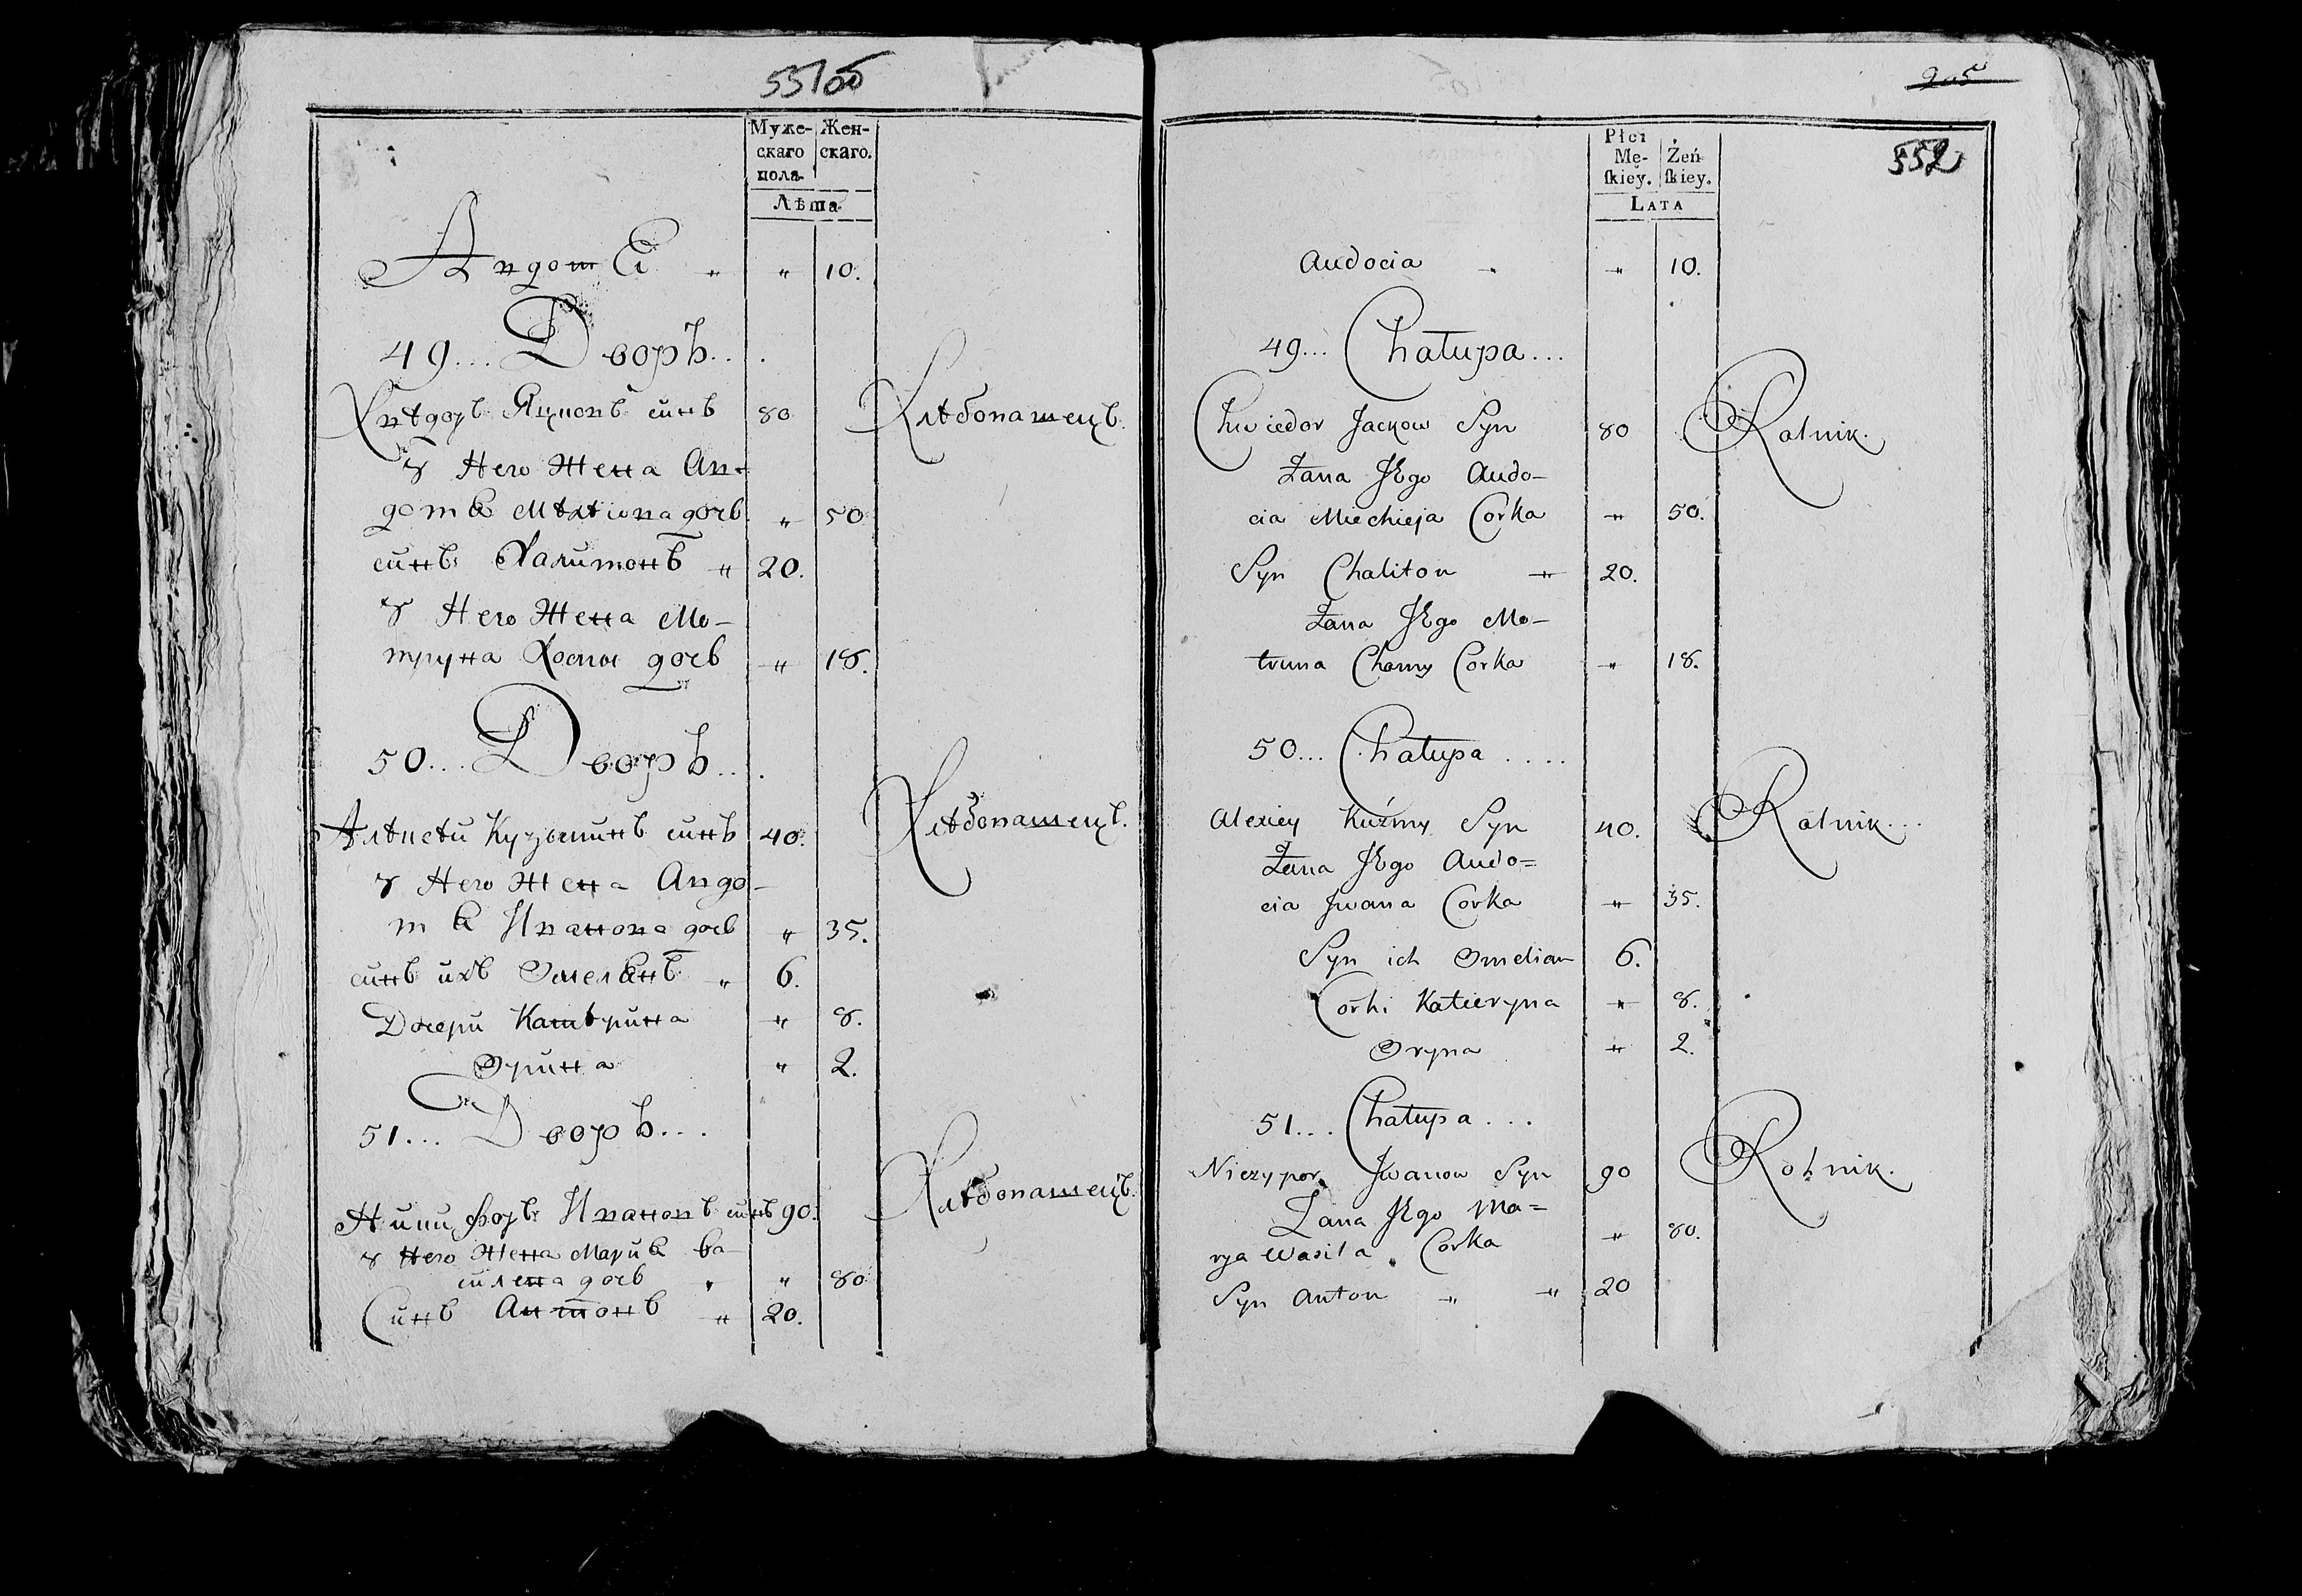 551об
Муже-
скаго
пола.
Жен-
скаго.
Лѣта.
Авдотя " " 10.
49... Дворъ...
Хведоръ Яцковъ синъ 80 Хлѣбопашецъ.
У Него Жена Ав-
дотя Мѣхѣева дочь " 50
синъ Халитонъ " 20.
У Него Жена Мо-
труна Хомы дочь " 18.
50... Дворъ...
Алѣксѣй Кузминъ синъ 40. Хлѣбопашецъ.
У Него Жена Авдо-
тя Иванова дочь " 35.
синъ ихъ Омелянъ " 6.
Дочери Катѣрина " 8.
Орина " 2.
51... Дворъ...
Ничифоръ Ивановъ синъ 90. Хлѣбопашецъ.
У Него Жена Мария Ва-
силева дочь " " 80
Синъ Антонъ " 20.
205
552
Płci
Mę-
ſkiey.
Żeń
ſkiey.
LATA
Audocia " " 10.
49... Chałupa...
Chwiedor Jackow Syn 80 Rolnik.
Żana JEgo Audo-
cia Miechieja Corka " 50.
Syn Chaliton " 20.
Żana JEgo Mo-
truna Chomy Corka " 18.
50... Chałupa....
Alexiey Kuźmy Syn 40. Rolnik...
Żana JEgo Audo=
cia Jwana Corka " 35.
Syn ich Omelian 6.
Corki Katieryna " 8.
Oryna " 2.
51... Chałupa...
Niczypor Jwanow Syn 90 Rolnik.
Żana JEgo Ma=
rya Wasila Corka " 80.
Syn Anton " " 20